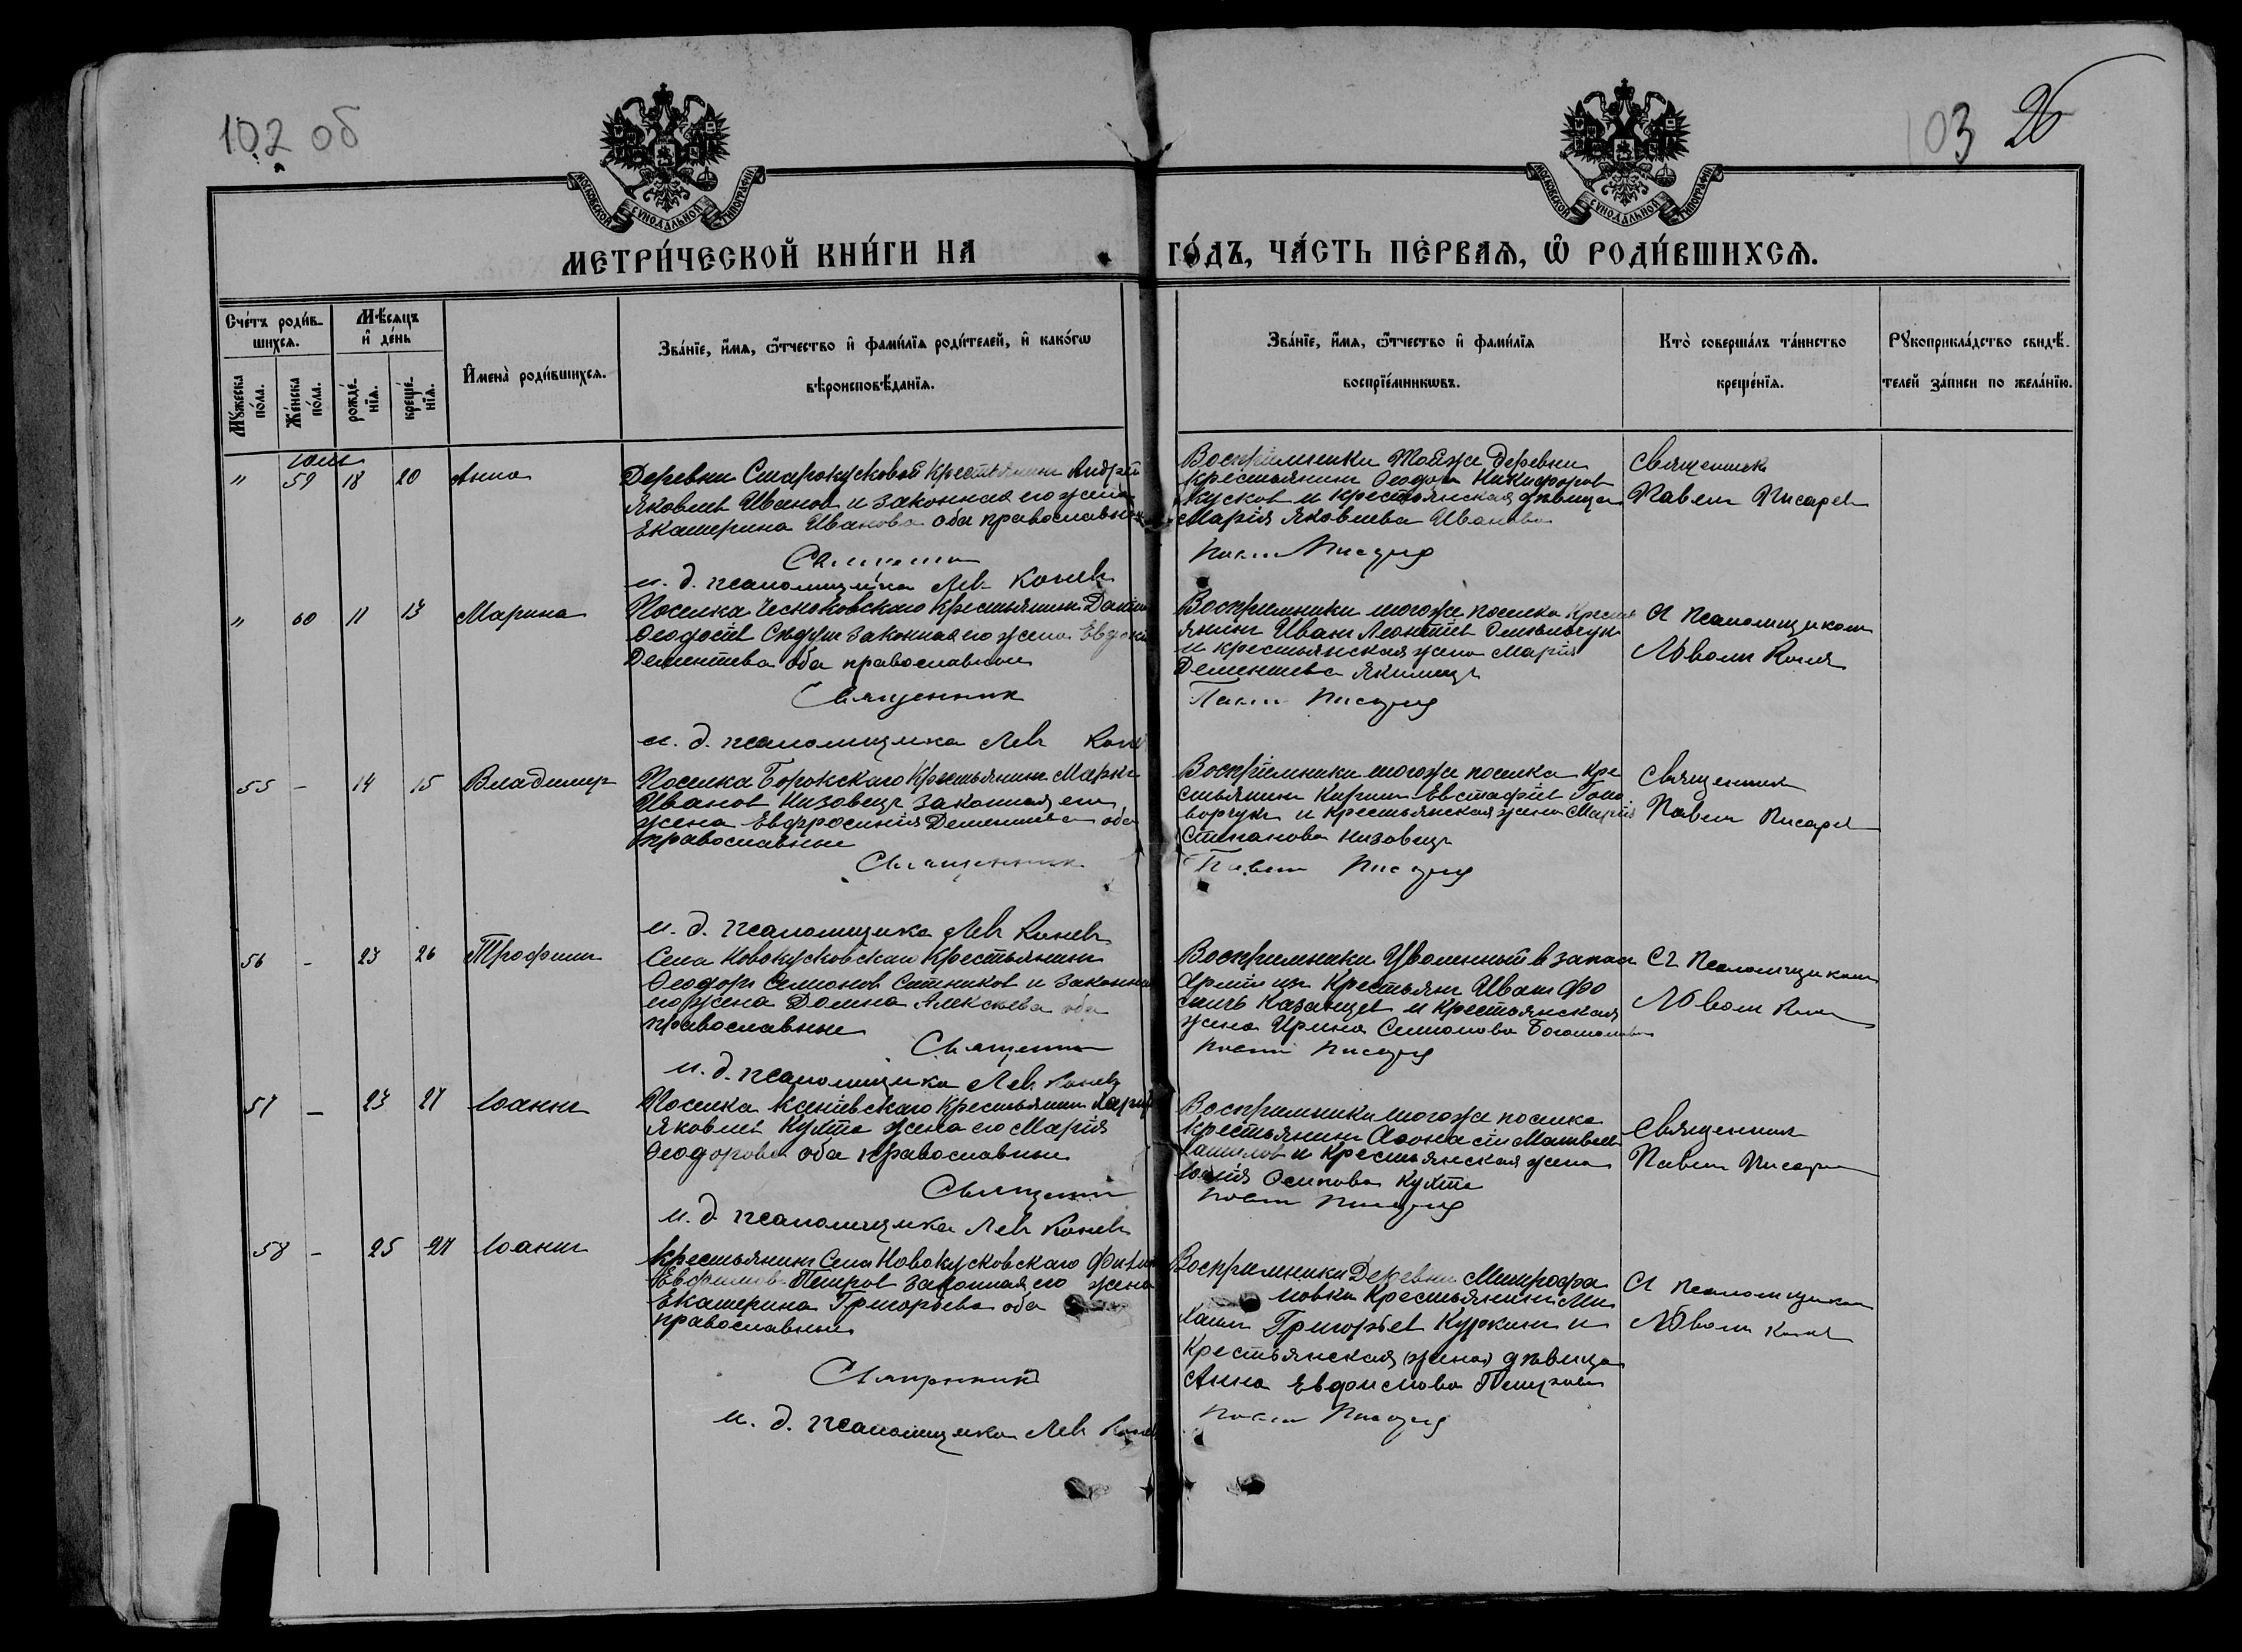 102 об
103 26
МОСКОВСКОЙ СѴНОДАЛЬНОЙ ТИПОГРАФІИ
МОСКОВСКОЙ СѴНОДАЛЬНОЙ ТИПОГРАФІИ
МЕТРИ́ЧЕСКОЙ КНИ́ГИ НА ГО́ДЪ, ЧА́СТЬ ПЕ́РВАѦ, Ѡ҆ РОДИ́ВШИХСѦ.
Сче́тъ роди́в-
шихсѧ.
Мꙋ́жеска по́ла.
Же́нска по́ла.
Мѣ́сѧцъ
и҆ де́нь
рожде́-
нїѧ.
креще́-
нїѧ.
И҆мена̀ роди́вшихсѧ.
Зва́нїе, и҆́мѧ, ѻ҆́тчество и҆ фами́лїѧ роди́телей, и҆ како́гѡ
вѣроисповѣ́данїѧ.
Зва́нїе, и҆́мѧ, ѻ҆́тчество и҆ фами́лїѧ
воспрїе́мникѡвъ.
Кто̀ соверша́лъ та́инство
креще́нїѧ.
Рꙋкоприкла́дство свидѣ́-
телей за́писи по жела́нїю.
" 59 18 20 Анна
Деревни Старокусковой крестьянинъ Андрей
Яковлев Иванов и законная его жена
Екатерина Иванова оба православные
Священник
и. д. псаломщика Лев Конев
Восприемники тойже деревни
крестьянин Ѳеодор Никифоров
Кусков и крестьянская дѣвица
Марія Яковлева Иванова
Павел Писарев
Священник
Павел Писарев
" 60 11 13 Марина
Поселка Чесноковскаго крестьянин Даниил
Ѳеодосіев законная его жена Евдокия
Дементьева оба православные
Священник
и. д. псаломщика Лев Конев
Восприемники тогоже поселка крест
янин Иван Леонтіев
и крестьянская жена Марія
Дементьева Якимец
Павел Писарев
С псаломщиком
Львом Конев
55 - 14 15 Владимир
Поселка Борокскаго крестьянин Марк
Иванов Низовец законная его
жена Евфросинія Дементьева оба
православные
Священник
и. д. псаломщика Лев Конев
Восприемники тогоже поселка кре
стьянин Кирилл Евстафіев Гон
ворчук и крестьянская жена Марія
Степанова Низовец
Павел Писарев
Священник
Павел Писарев
56 - 23 26 Трофим
Села Новокусковскаго крестьянин
Ѳеодор Семионов Ситников и законная
его жена Домна Алексеева оба
православные
Священник
и. д. псаломщика Лев Конев
Восприемники Уволенный в запас
Арміи из крестьян Иван Фо
мичъ Казанцев и крестьянская
жена Ирина Семионова
Павел Писарев
С псаломщиком
Львом Конев
57 - 23 27 Іоанн
Поселка Ксеніевскаго крестьянин
Яковлев Кухта жена его Марія
Ѳеодорова оба православные
Священник
и. д. псаломщика Лев Конев
Восприемники тогоже поселка
крестьянин Аѳонасій Матвеев
и крестьянская жена
Осипова Кухта
Павел Писарев
Священник
Павел Писарев
58 - 25 27 Іоанн
Крестьянин Села Новокусковскаго
Евфимов Петров законная его жена
Екатерина Григорьева оба
православные
Священник
и. д. псаломщика Лев Конев
Восприемники Деревни Митрофа
новки крестьянин Ми
хаил Григорьев Куркин и
крестьянская (жена) дѣвица
Анна Евфимова Петрова
Павел Писарев
С псаломщиком
Львом Конев